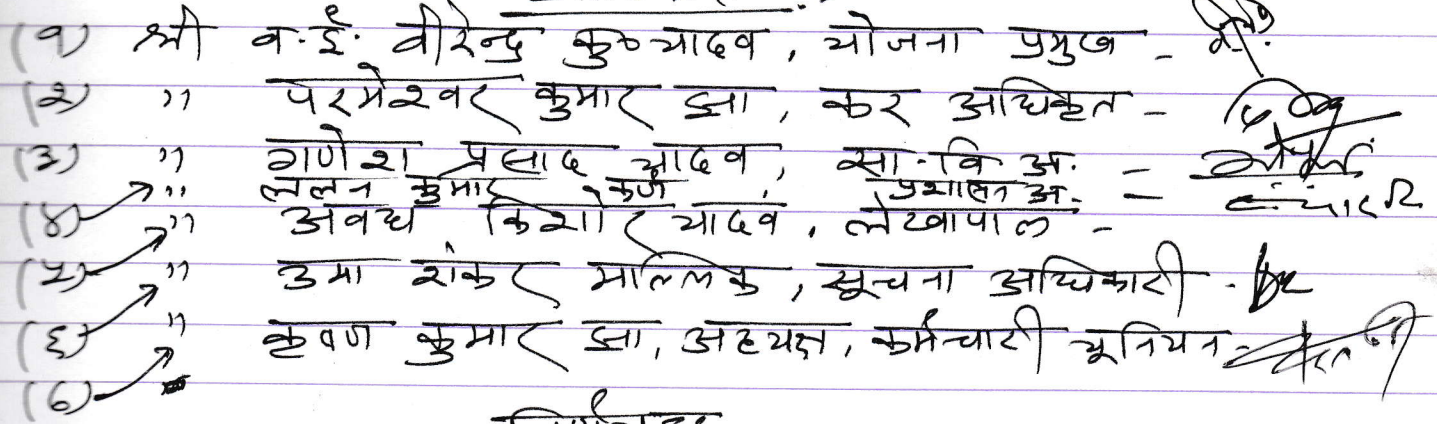 (१) श्री व.ई. वीरेन्द्र कु० यादव, योजना प्रमुख -
(२) " परमेश्वर कुमार झा, कर अधिकृत -
(३) " गणेश प्रसाद यादव, सा.वि.अ. -
(४) " ललन कुमार कर्ण, प्रशासन अ. -
(५) " अवध किशोर यादव, लेखापाल -
(६) " उमा शंकर मल्लिक, सूचना अधिकारी -
(७) " कृष्ण कुमार झा, अध्यक्ष, कर्मचारी यूनियन -